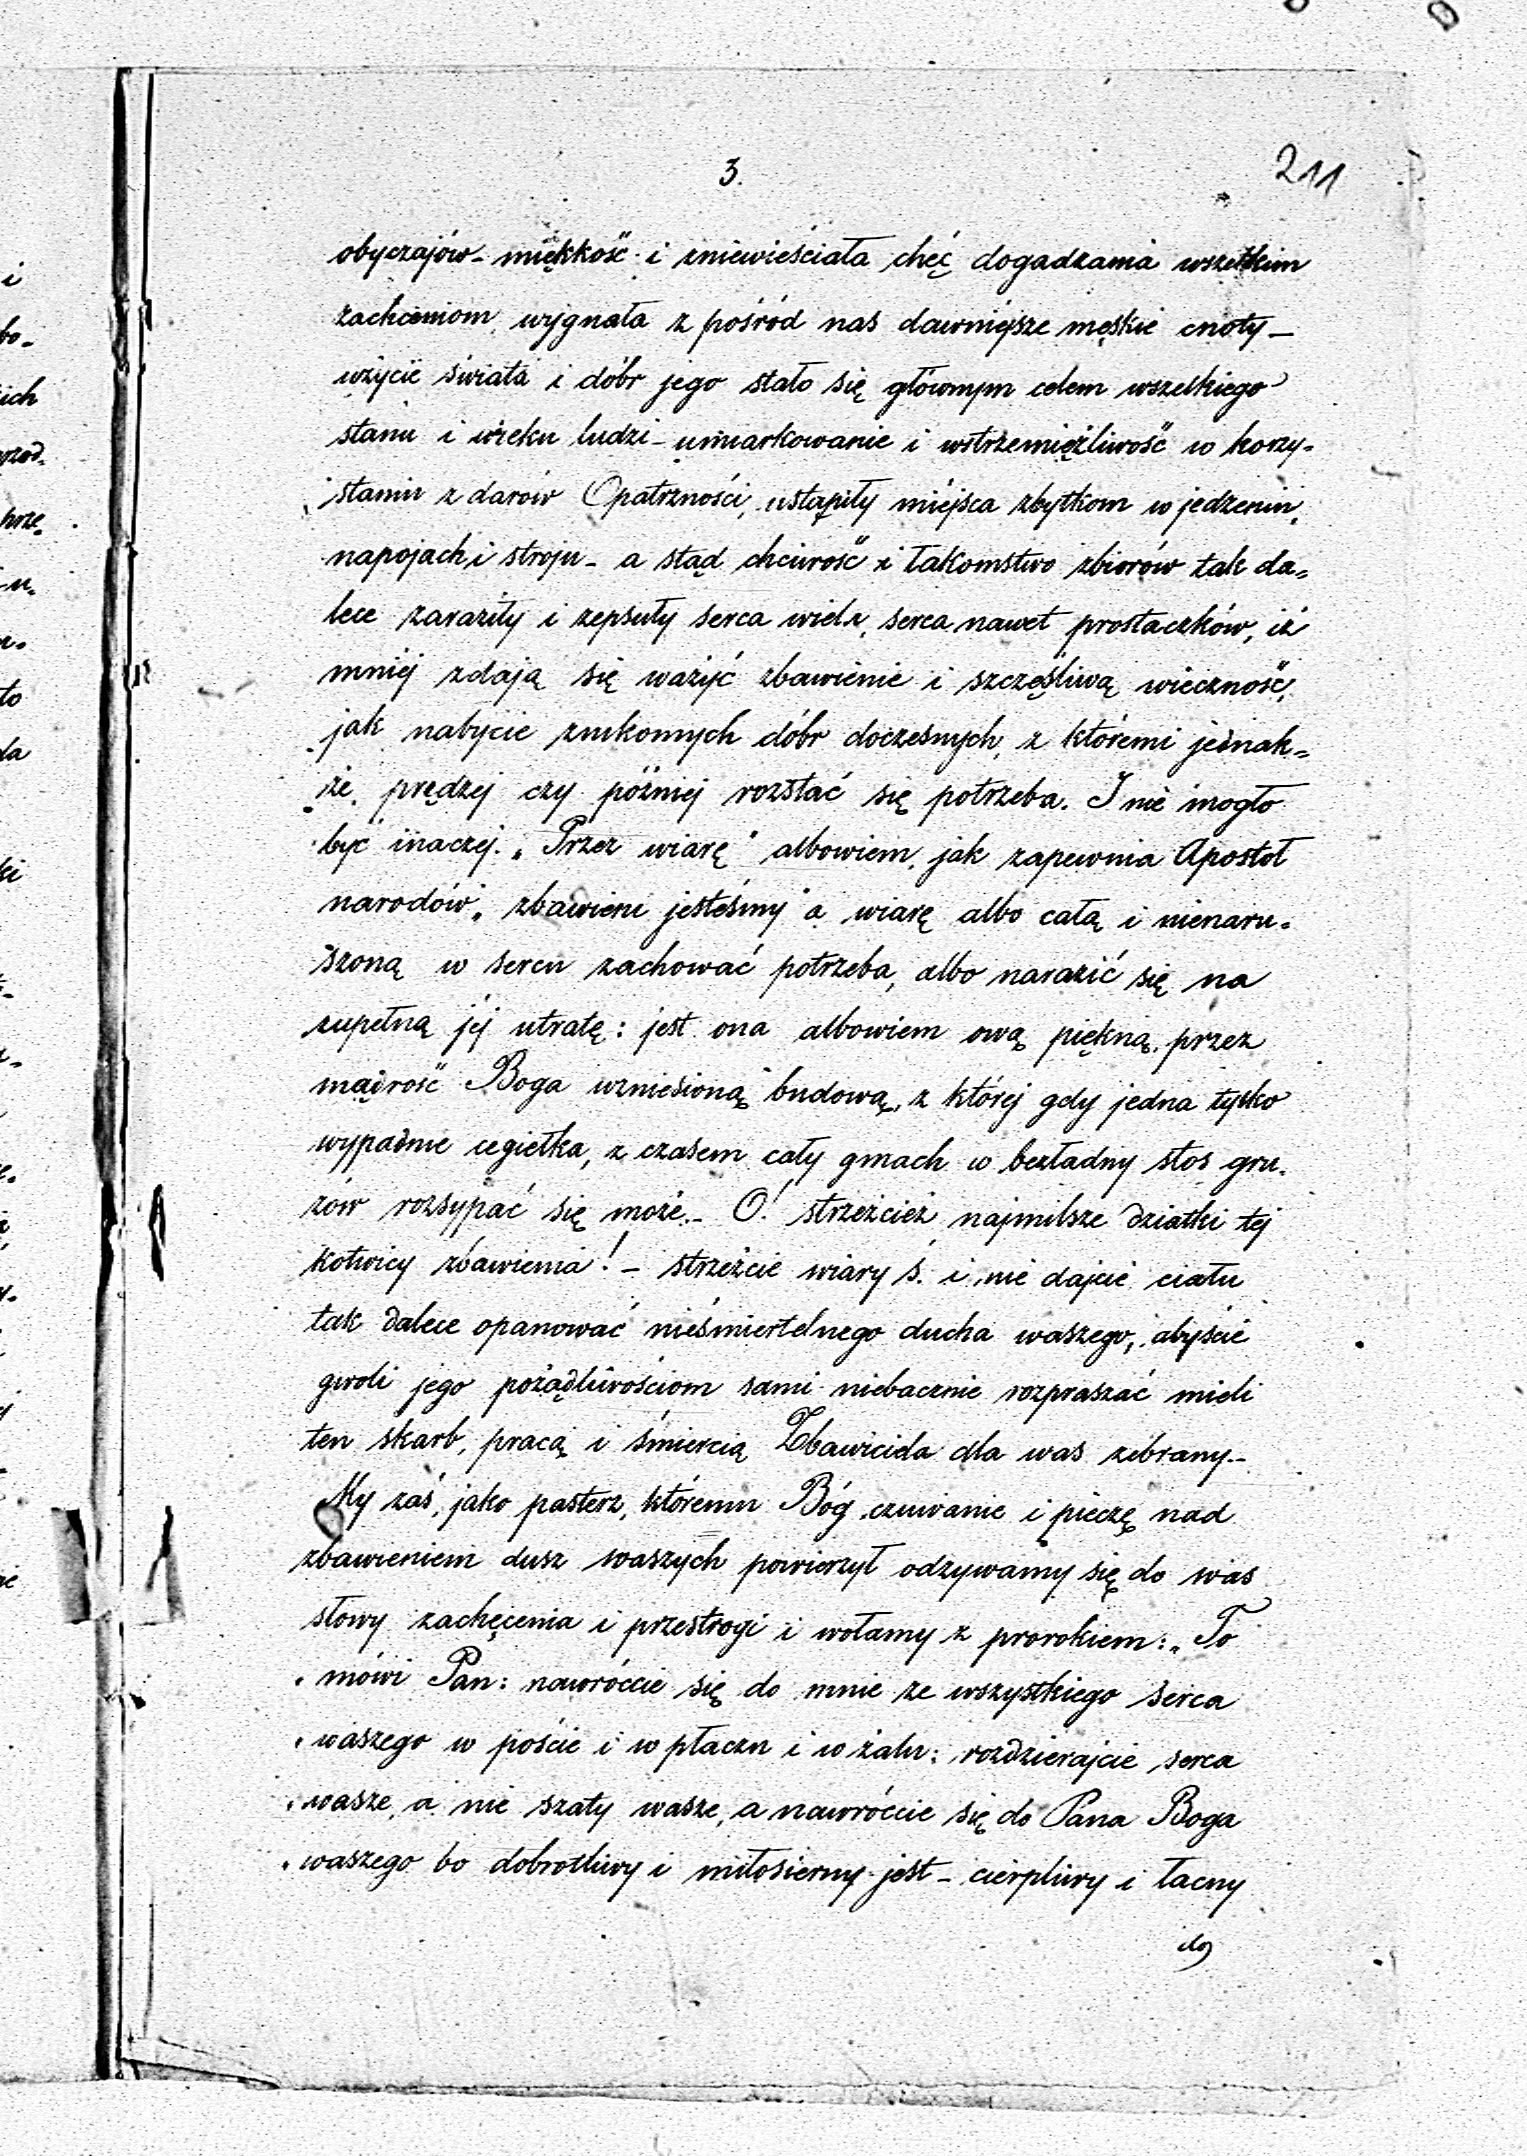 3.
211
obyczajów – miękkość i zniewieściała chęć dogadzania wszelkim
zachceniom wygnała z pośród nas dawniejsze męskie cnoty –
użycie świata i dóbr jego stało się głównym celem wszelkiego
stanu i wieku ludzi – umiarkowanie i wstrzemięźliwość w korzy-
staniu z darów Opatrzności, ustąpiły miejsca zbytkom w jedzeniu,
napojach i stroju – a stąd chciwość i łakomstwo zbiorów tak da-
lece zaraziły i zepsuły serca wielu, serca nawet prostaczków, iż
mniej zdają się ważyć zbawienie i szczęśliwą wieczność,
jak nabycie znikomych dóbr doczesnych, z któremi jednak-
że prędzej czy później rozstać się potrzeba. I nie mogło
być inaczej. „Przez wiarę" albowiem, jak zapewnia Apostoł
narodów „zbawieni jesteśmy" a wiarę albo całą i nienaru-
szoną w sercu zachować potrzeba, albo narazić się na
zupełną jéj utratę: jest ona albowiem ową piękną, przez
mądrość Boga wzniesioną budową, z której gdy jedna tylko
wypadnie cegiełka, z czasem cały gmach w bezładny stos gru-
zów rozsypać się może. – O! strzeżcież najmilsze dziatki tej
kotwicy zbawienia! – strzeżcie wiary ś. i nie dajcie ciału
tak dalece opanować nieśmiertelnego ducha waszego, abyście
gwoli jego pożądliwościom sami niebacznie rozpraszać mieli
ten skarb, pracą i śmiercią Zbawiciela dla was zebrany. –
My zaś, jako pasterz, któremu Bóg czuwanie i pieczę nad
zbawieniem dusz waszych powierzył odzywamy się do was
słowy zachęcenia i przestrogi i wołamy z prorokiem: „To
„mówi Pan: nawróćcie się do mnie ze wszystkiego serca
„waszego w poście i w płaczu i w żalu: rozdzierajcie serca
„wasze, a nie szaty wasze, a nawróćcie się do Pana Boga
„waszego bo dobrotliwy i miłosierny jest – cierpliwy i łacny
do